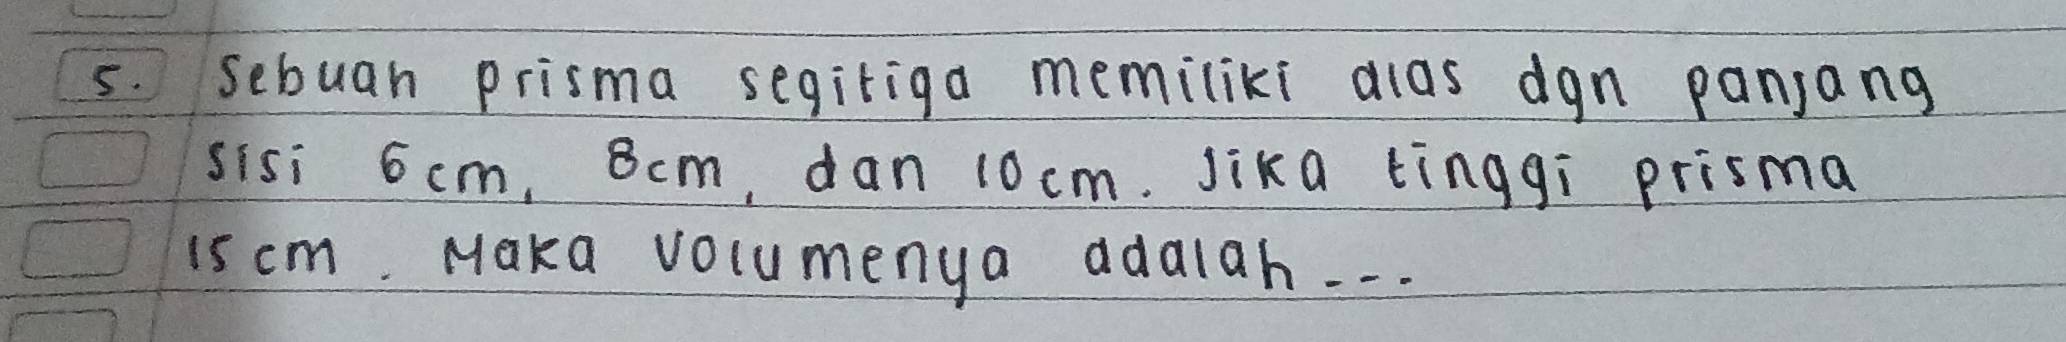 5. Sebuah prisma segitiga memiliki alas dgn panjang
sisi 6cm, 8cm, dan 10cm. Jika tinggi prisma
15cm. Maka volumenya adalah...